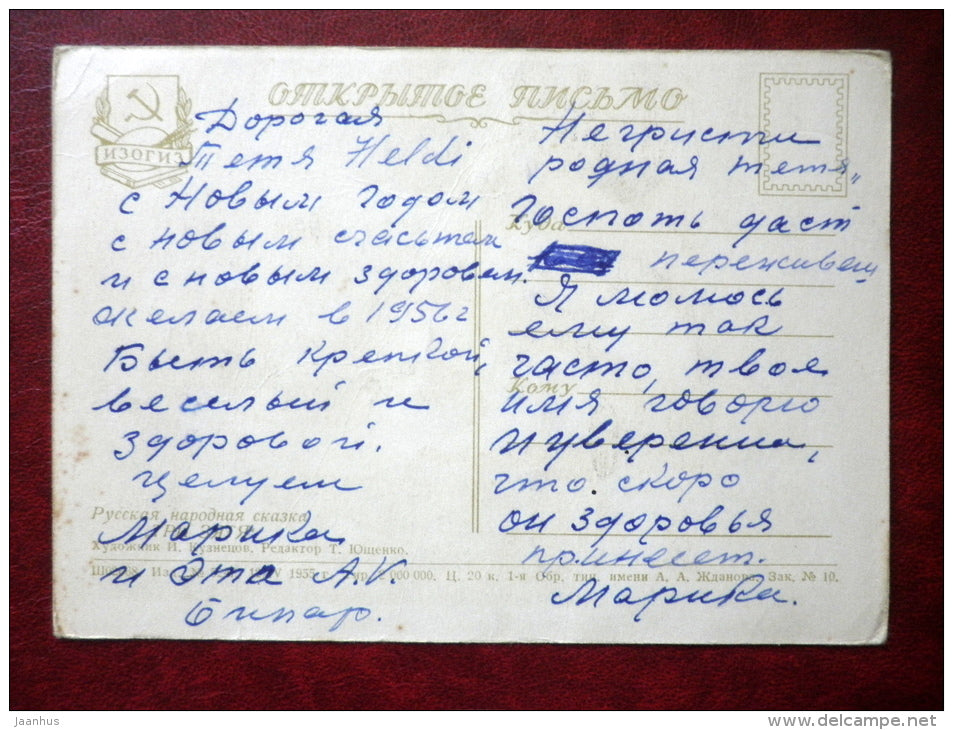 ОТКРЫТОЕ ПИСЬМО
ИЗОГИЗ
Дорогая
Тетя Heldi
с Новым годом
с новым счастьем
и с новым здоровем.
желаем в 1956 г
Быть крепкой,
веселый и
здоровой.
целуем
Марика
и Эта А.К.
Русская народная сказка
Художник И. Кузнецов. Редактор Т. Ющенко.
1955 г. 000 000. Ц. 20 к. 1-я Обр. тип. имени А. А. Жданова. Зак. № 10.
Не грусти
родная тетя,,
госпоть даст
Куда
переживеш
Я молюсь
ему так
часто, твоя
Кому
имя говорю
и уверенна,
что скоро
он здоровья
принесет.
Марика.
jaanhus
www.delcampe.net